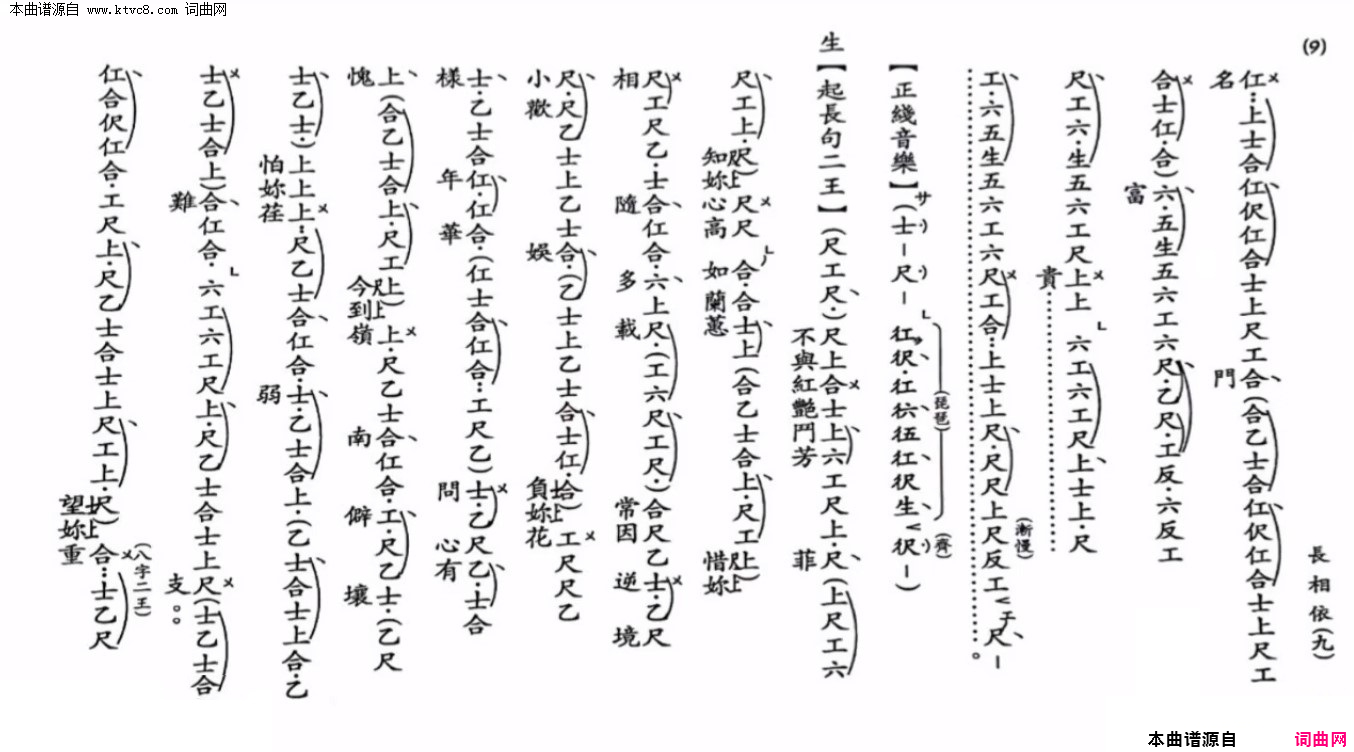 本曲谱源自 www.ktvc8.com 词曲网
(9)
長相依(九)
仩⋯上士合仜伬仜合士上尺工合(合乙士合仜伬仜合士上尺工
名 門
合士仜·合)六·五生五六工六尺·乙尺·工反·六反工
富
尺工六·生五六工尺上上 六工六工尺上士上·尺
貴
工·六五生五六工六尺工合·上士上尺·尺尺上尺反工 尺
(漸慢)
【正綫音樂】(士–尺–
(琵琶)
(齊)
生【起長句二王】(尺工尺·)尺上合士上六工尺上·尺(上尺工六
不與紅艷鬥芳 菲
尺工上·尺)尺上尺尺 合·合士上(合乙士合上·尺工上)尺上
知妳心高 如蘭蕙 惜妳
尺工尺乙·士合仜合·六上尺·(工六尺工尺·)合尺乙士·乙尺
相 隨 多 載 常因 逆 境
尺·尺乙士上乙士合·(乙士上乙士合士仜·合)士上工尺尺乙
小歡 娛 負妳花
士·乙士合仜·仜合·(仜士合仜合⋯工尺乙)士·乙尺乙·士合
樣 年 華 問 心有
上(合乙士合上·尺工上)尺上上·尺乙士合仜合·工·尺乙士·(乙尺
愧 今到嶺 南 僻 壤
士乙士·)上上上·尺乙士合仜合·士·乙士合上·(乙士合士上合·乙
怕妳荏 弱
士乙士合上)合仜合·六工六工尺上·尺乙士合士上尺(士乙士合
難 支。。
仜合伬仜合·工尺上·尺乙士合士上尺工上·尺)士上合⋯士乙尺
望妳重
(八字二王)
本曲谱源自 词曲网